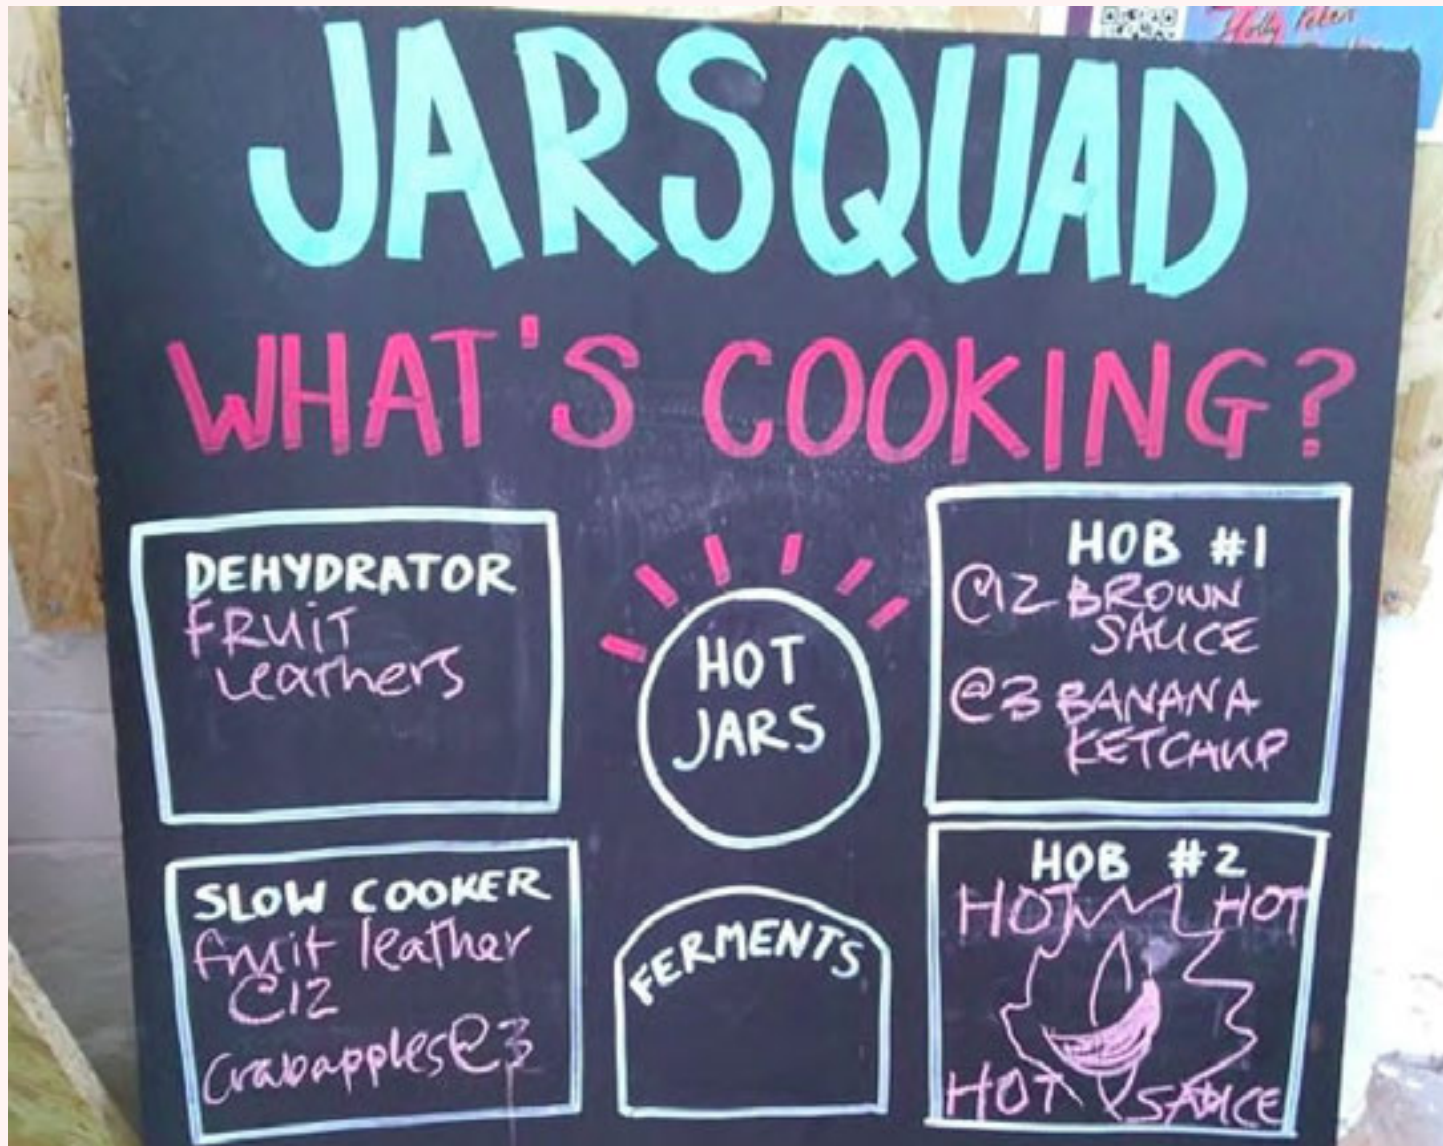 Holly Peken
JARSQUAD
WHAT'S COOKING?
DEHYDRATOR
FRUiT
Leathers
HOT
JARS
HOB #1
@12 BROWN
SAUCE
@3 BANANA
KETCHUP
SLOW COOKER
fruit leather
@12
Crabapples@3
FERMENTS
HOB #2
HOT HOT
HOT SAUCE